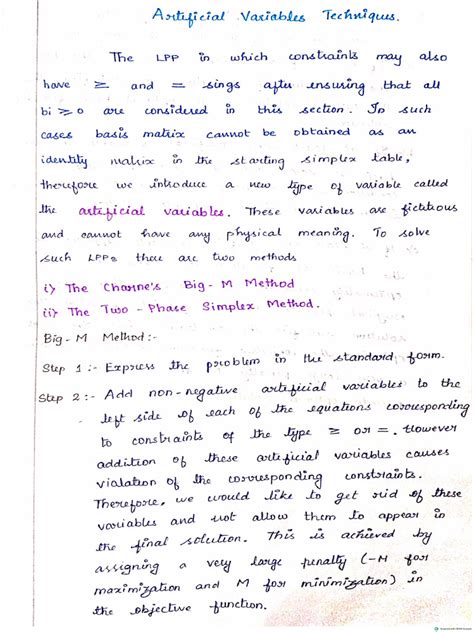 Artificial Variables Techniques.
The LPP in which constraints may also
have ≥ and = sings after ensuring that all
bi ≥ 0 are considered in this section. In such
cases basis matrix cannot be obtained as an
identity matrix in the starting simplex table,
therefore we introduce a new type of variable called
the artificial variables. These variables are fictitous
and cannot have any physical meaning. To solve
such LPPs there are two methods
i) The Charne's Big - M Method
ii) The Two - Phase Simplex Method.
Big - M Method :-
Step 1 :- Express the problem in the standard form.
Step 2 :- Add non-negative artificial variables to the
left side of each of the equations corresponding
to constraints of the type ≥ or =. However
addition of these artificial variables causes
vialation of the corresponding constraints.
Therefore, we would like to get rid of these
variables and not allow them to appear in
the final solution. This is achieved by
assigning a very large penalty (-M for
maximization and M for minimization) in
the objective function.